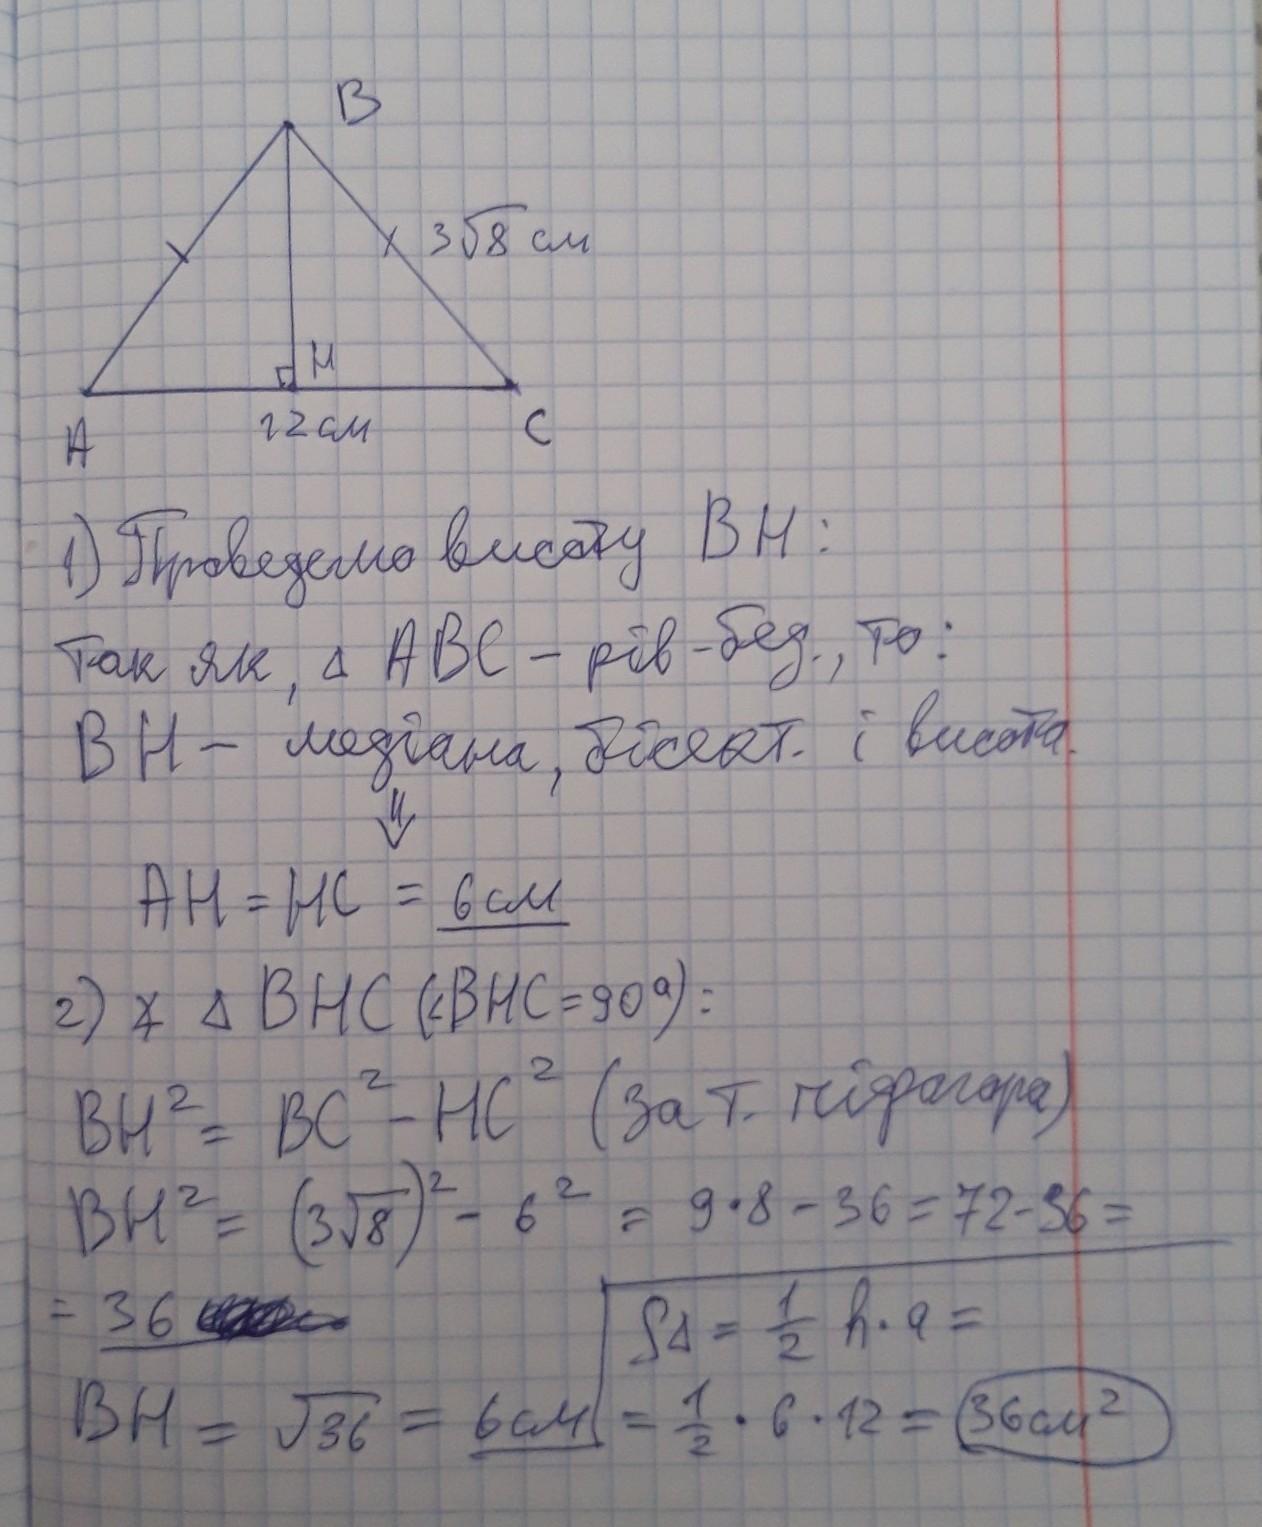 B
3√8 см
H
A
12 см
C
1) Проведемо висоту BH:
так як, △ ABC – рів-бед., то:
BH – медіана, бісект. і висота.
⇓
AH = HC = 6 см
2) ∡ △ BHC (∠BHC = 90°):
BH² = BC² – HC² (за т. піфагора)
BH² = (3√8)² – 6² = 9·8 – 36 = 72 – 36 =
= 36
BH = √36 = 6 см
S△ = 1/2 h·a =
= 1/2 · 6 · 12 = 36 см²